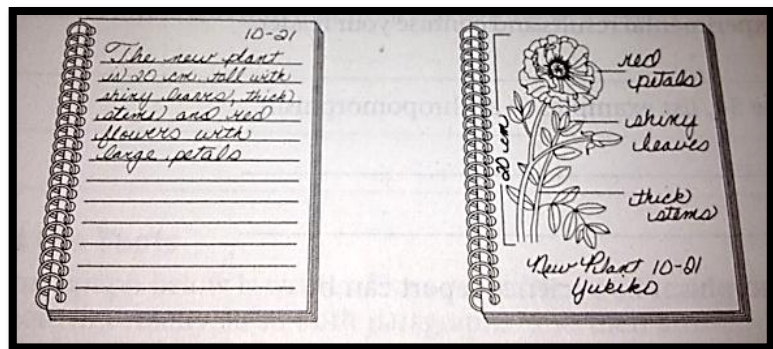 10-21
The new plant
is 20 cm tall with
shiny leaves, thick
stems and red
flowers with
large petals
red
petals
shiny
leaves
20 cm
thick
stems
New Plant 10-21
Yukiko